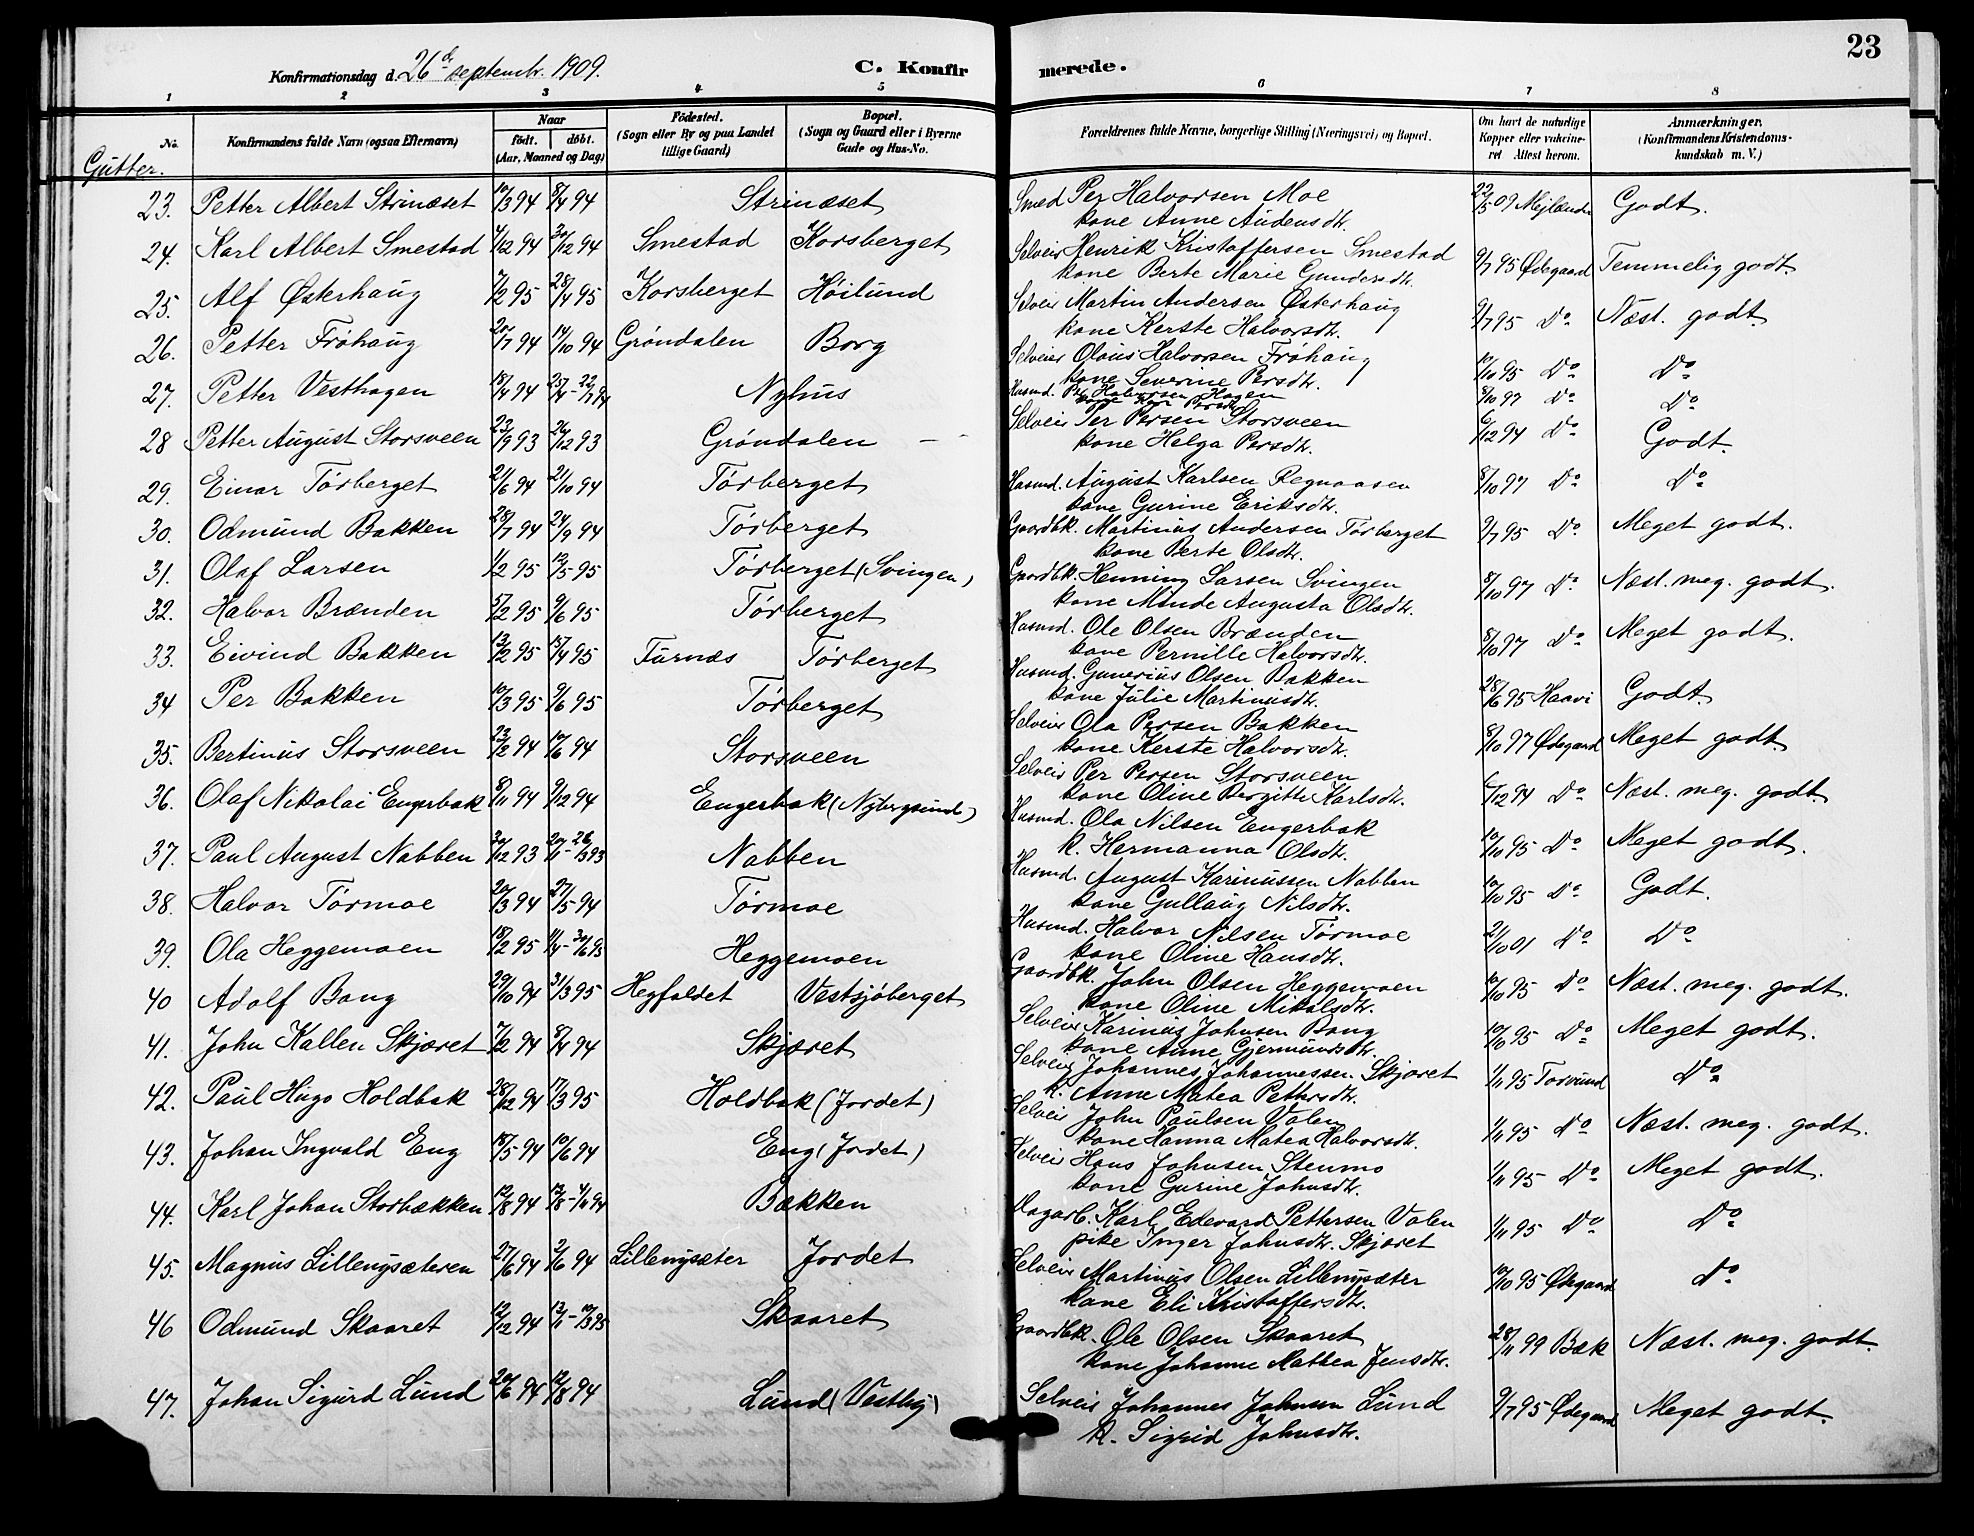 23
Konfirmationsdag d. 26de septembr. 1909. C. Konfirmerede.
1 2 3 4 5 6 7 8
No. Konfirmandens fulde Navn (ogsaa Efternavn) Naar født. døbt. (Aar, Maaned og Dag) Fødested. (Sogn eller By og paa Landet tillige Gaard) Bopæl. (Sogn og Gaard eller i Byerne Gade og Hus-No. Forældrenes fulde Navne, borgerlige Stilling (Næringsvei) og Bopæl. Om havt de naturlige Kopper eller vakcineret Attest herom. Anmærkninger. (Konfirmandens Kristendomskundskab m. V.)
Gutter.
23. Petter Albert Strinæset 10/3 94 8/4 94 Strinæset Smed Per Halvorsen Moe 22/5 09 Mejlænder Godt.
kone Anne Audensdtr.
24. Karl Albert Smestad 4/12 94 30/12 94 Smestad Korsberget Selveier Henrik Kristoffersen Smestad 9/7 95 Ødegaard Temmelig godt
kone Berte Marie Gundersdtr.
25. Alf Østerhaug 7/2 95 28/4 95 Korsberget Høilund Selveier Martin Andersen Østerhaug 9/7 95 Do Næst. godt.
kone Kerste Halvorsdtr.
26. Petter Frøhaug 20/7 94 14/10 94 Grøndalen Borg Selveier Olaus Halvorsen Frøhaug 10/10 95 Do Do
kone Severine Persdtr.
27. Petter Vesthagen 18/4 94 Nyhus Husmd. Per Halvorsen Hagen 8/10 97 Do Do
kone Kari Persdtr.
28 Petter August Storsveen 23/9 93 26/12 93 Grøndalen — " Selveier Per Persen Storsveen 6/12 94 Do Godt.
kone Helga Persdtr.
29. Einar Tørberget 21/6 94 21/10 94 Tørberget Husmd. August Karlsen Regnaasen 8/10 97 Do Do
kone Gurine Eriksdtr.
30. Odmund Bakken 28/7 94 24/9 94 Tørberget Gaardbk. Martinus Andersen Tørberget 9/7 95 Do Meget godt.
kone Berte Olsdtr.
31. Olaf Larsen 1/2 95 12/5 95 Tørberget (Svingen) Gaardbk. Henning Larsen Svingen 8/10 97 Do Næst. meg. godt.
kone Minde Augusta Olsdtr.
32. Halvor Brænden 5/2 95 9/6 95 Tørberget Husmd. Ole Olsen Brænden 8/10 97 Do Meget godt.
kone Pernille Halvorsdtr.
33. Eivind Bakken 13/2 95 15/4 95 Furnæs Tørberget Husmd. Gunerius Olsen Bakken 28/6 95 Haavi Godt.
kone Julie Martinusdtr.
34 Per Bakken 10/3 95 9/6 95 Tørberget Selveier Ola Persen Bakken 8/10 97 Ødegaard Meget godt.
kone Kerste Halvorsdtr.
35. Bertinus Storsveen 23/2 94 17/6 94 Storsveen Selveier Per Persen Storsveen 6/12 94 Do Næst. meg. godt.
kone Oline Bergitte Karlsdtr.
36. Olaf Nikolai Engerbak 8/11 94 9/12 94 Engerbak (Nybergsund) Husmd. Ola Nilsen Engerbak 10/10 95 Do Meget godt.
k. Hermanna Olsdtr.
37. Paul August Nabben 30/12 93 Nabben Husmd. August Karinussen Nabben 10/10 95 Do Godt.
kone Gullaug Nilsdtr.
38. Halvor Tørmoe 20/3 94 27/5 94 Tørmoe Husmd. Halvor Nilsen Tørmoe 21/10 01 Do Do
kone Oline Hansdtr.
39. Ola Heggemoen 18/2 95 Heggemoen Gaardbk. John Olsen Heggemoen 10/10 95 Do Næst. meg. godt.
kone Oline Mikalsdtr.
40 Adolf Bang 29/10 94 31/3 95 Hegfaldet Vestsjøberget Selveier Karinus Johnsen Bang 10/10 95 Do Meget godt.
kone Anne Gjermundsdtr.
41. John Kallen Skjæret 7/2 94 8/4 94 Skjæret Selveier Johannes Johannessen Skjæret 1/11 95 Torsund Do
k. Anne Matea Pettersdtr.
42. Paul Hugo Holdbak 28/12 94 17/3 95 Holdbak (Jordet) Selveier John Paulsen Valen 1/11 95 Do Næst. meg. godt.
kone Hanna Matea Halvorsdtr.
43. Johan Ingvald Eng 18/5 94 10/6 94 Eng (Jordet) Selveier Hans Johnsen Stenmo 1/11 95 Do Meget godt.
kone Gurine Johnsdtr.
44. Karl Johan Storbækken 12/8 94 Bækken Dagarb. Karl Edevard Pettersen Valen 1/11 95 Do Do
pike Inger Johnsdtr. Skjæret
45. Magnus Lillengsæteren 27/6 94 Lillengsæter Jordet Selveier Martinus Olsen Lillengsæter 10/10 95 Ødegaard Do
kone Eli Kristoffersdtr.
46 Odmund Skaaret 12/12 94 Skaaret Gaardbk. Ole Olsen Skaaret 28/11 99 Bæk Næst. meg. godt.
kone Johanne Mathea Jensdtr.
47. Johan Sigurd Lund 20/6 94 12/8 94 Lund (Vestby) Selveier Johannes Johnsen Lund 9/7 95 Ødegaard Meget godt.
k. Sigrid Johnsdtr.